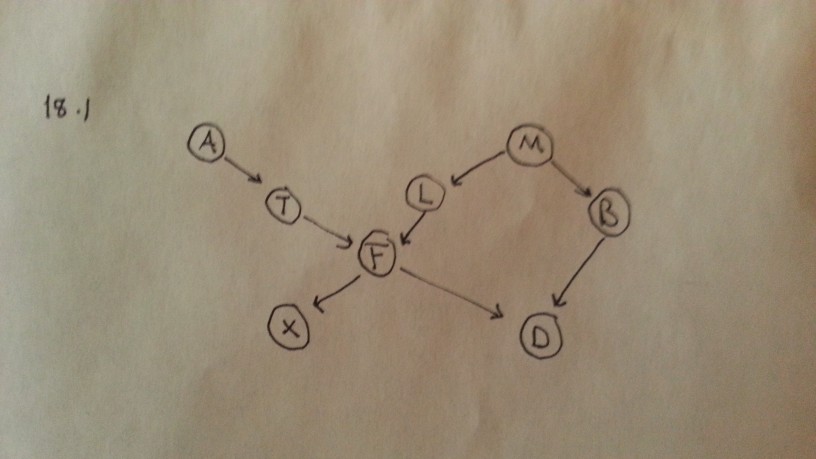 18.1
A
M
T
L
B
F
X
D